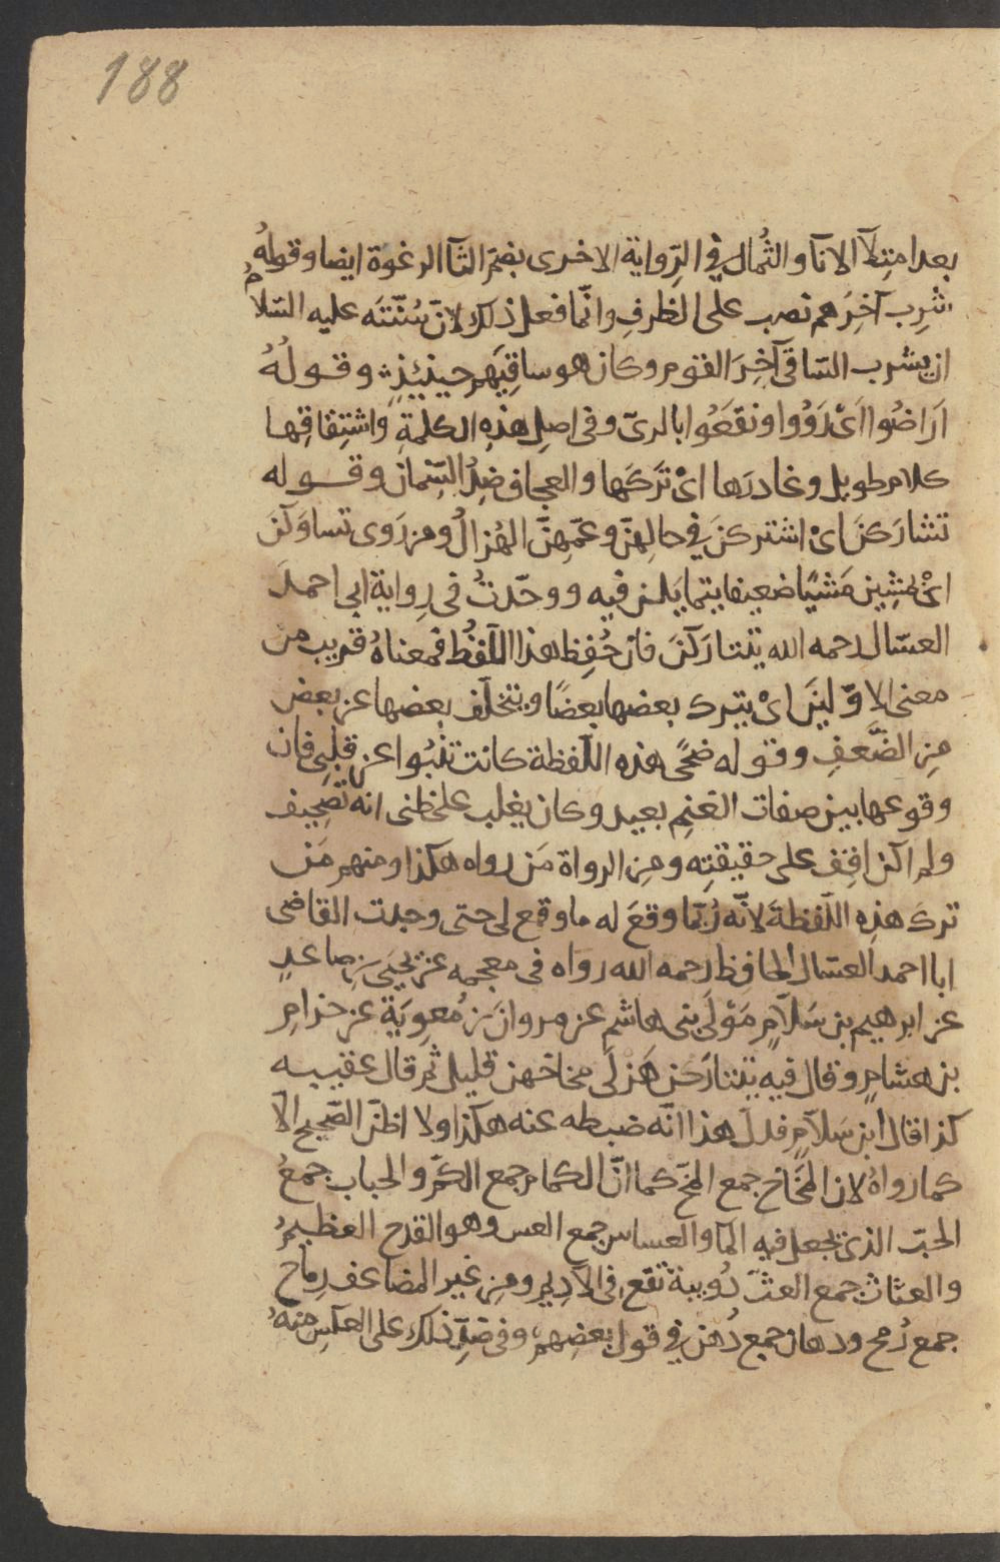 188
بعد امتِلآ الانآ والثُمال في الرِّواية الاخرى بضمّ الثآ الرغوة ايضا وقولهُ
شَرِب آخِرَهم نصب على الظرفِ وانّما فعل ذلك لانّ سُنّتَه عليه السّلامُ
ان يشرب السّاقى آخِرَ القوم وكان هو ساقِيَهم حينئِذٍ وقولُهُ
اَرَاضُوا اىْ رَوُوا ونقَعُوا بالرىّ وفى اصلِ هذِهِ الكلمةِ واشتِقاقِها
كلام طويل وغادرَها اىْ تَرَكَها والعجاف ضِدُ السِّمان وقوله
تشارَكنَ اىْ اشتركنَ في حالهِنّ وعَمّهِنّ الهُزالُ ومن رَوى تساوَكنَ
اىْ يمشِين مَشيًا ضعيفا يتمايَلن فيه ووجَدتُ فى رِواية ابى احمدَ
العسّال رحمه الله يتتارَكنَ فان حُفِظ هذا اللّفظُ فمعناهُ قريب من
معنى الاوّلَينِ اىْ يترك بعضها بعضًا ويتخلّف بعضها عن بعض
مِن الضَّعفِ وقوله ضُحًى هذه اللّفظة كانت تنبُوا عن قلبِى فان
وقوعها بين صفات الغنمِ بعيد وكان يغلب على ظنى انه تصحِيف
ولم اكن اقِف على حقيقتِه ومِن الرواة مَن رواه هكذا ومنهم مَن
تركَ هذِه اللّفظةَ لانّه رُبّما وقعَ له ما وقع لى حتى وجدت القاضى
ابا احمد العسّال الحافظ رحمه الله رواه فى معجمه عن يحيَى بنِ صاعدٍ
عن ابرهيم بن سَلاّمٍ مَوْلَى بنى هاشم عن مروانَ بنِ مُعوِيَةَ عن حزامِ
بن هشامٍ وقال فيه يتتارَكن هَزلَى مخاخهن قليل ثم قال عقيبه
كذا قال ابن سَلاّمٍ فدلَّ هذا انّه ضبطه عنه هكذا ولا اظنّ الصّحيح الّا
كما رواهُ لان المِخَاخ جمع المخّ كما انّ الكمام جمع الكمّ والحِباب جمعُ
الحبّ الذى يجعل فيه المآ والعساس جمع العس وهو القدح العظيمُ
والعثاث جمع العثّ دُويبة تقع فى الآديمِ ومِن غير المضاعف رِماح
جمع رُمح ودهان جمع دُهن في قول بعضِهم وفى ضِدِّ ذلك على العكسِ منهُ